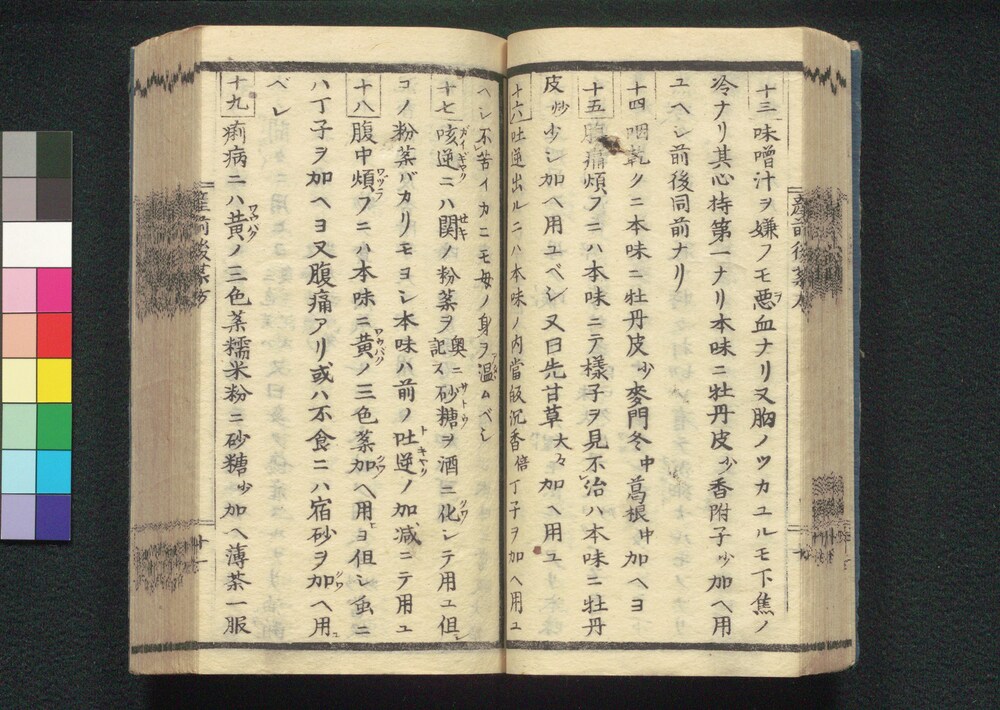 十三味噌汁ヲ嫌フモ悪血ナリ又胸ノツカユルモ下焦ノ
冷ナリ其心持第一ナリ本味ニ牡丹皮少香附子少加ヘ用
ユヘシ前後同前ナリ
十四咽乾クニ本味ニ牡丹皮少麥門冬中葛根中加ヘヨ
十五腹痛煩フニハ本味ニテ様子ヲ見不治ハ本味ニ牡丹
皮炒少シ加ヘ用ユベシ又曰先甘草大々加ヘ用ユ
十六吐逆出ルニハ本味ノ内當皈沉香倍丁子ヲ加ヘ用ユ
ヘシ不苦イカニモ母ノ身ヲ温ムベシ
十七咳逆ニハ関ノ粉薬ヲ奥ニ記ス砂糖ヲ酒ニ化シテ用ユ但シ
コノ粉薬バカリモヨシ本味ハ前ノ吐逆ノ加减ニテ用ユ
十八腹中煩フニハ本味ニ黄ノ三色薬加ヘ用ヒヨ但シ虫ニ
ハ丁子ヲ加ヘヨ又腹痛アリ或ハ不食ニハ宿砂ヲ加ヘ用ユ
ベシ
十九痢病ニハ黄ノ三色薬糯米粉ニ砂糖少加ヘ薄茶一服
産前後薬方
十一